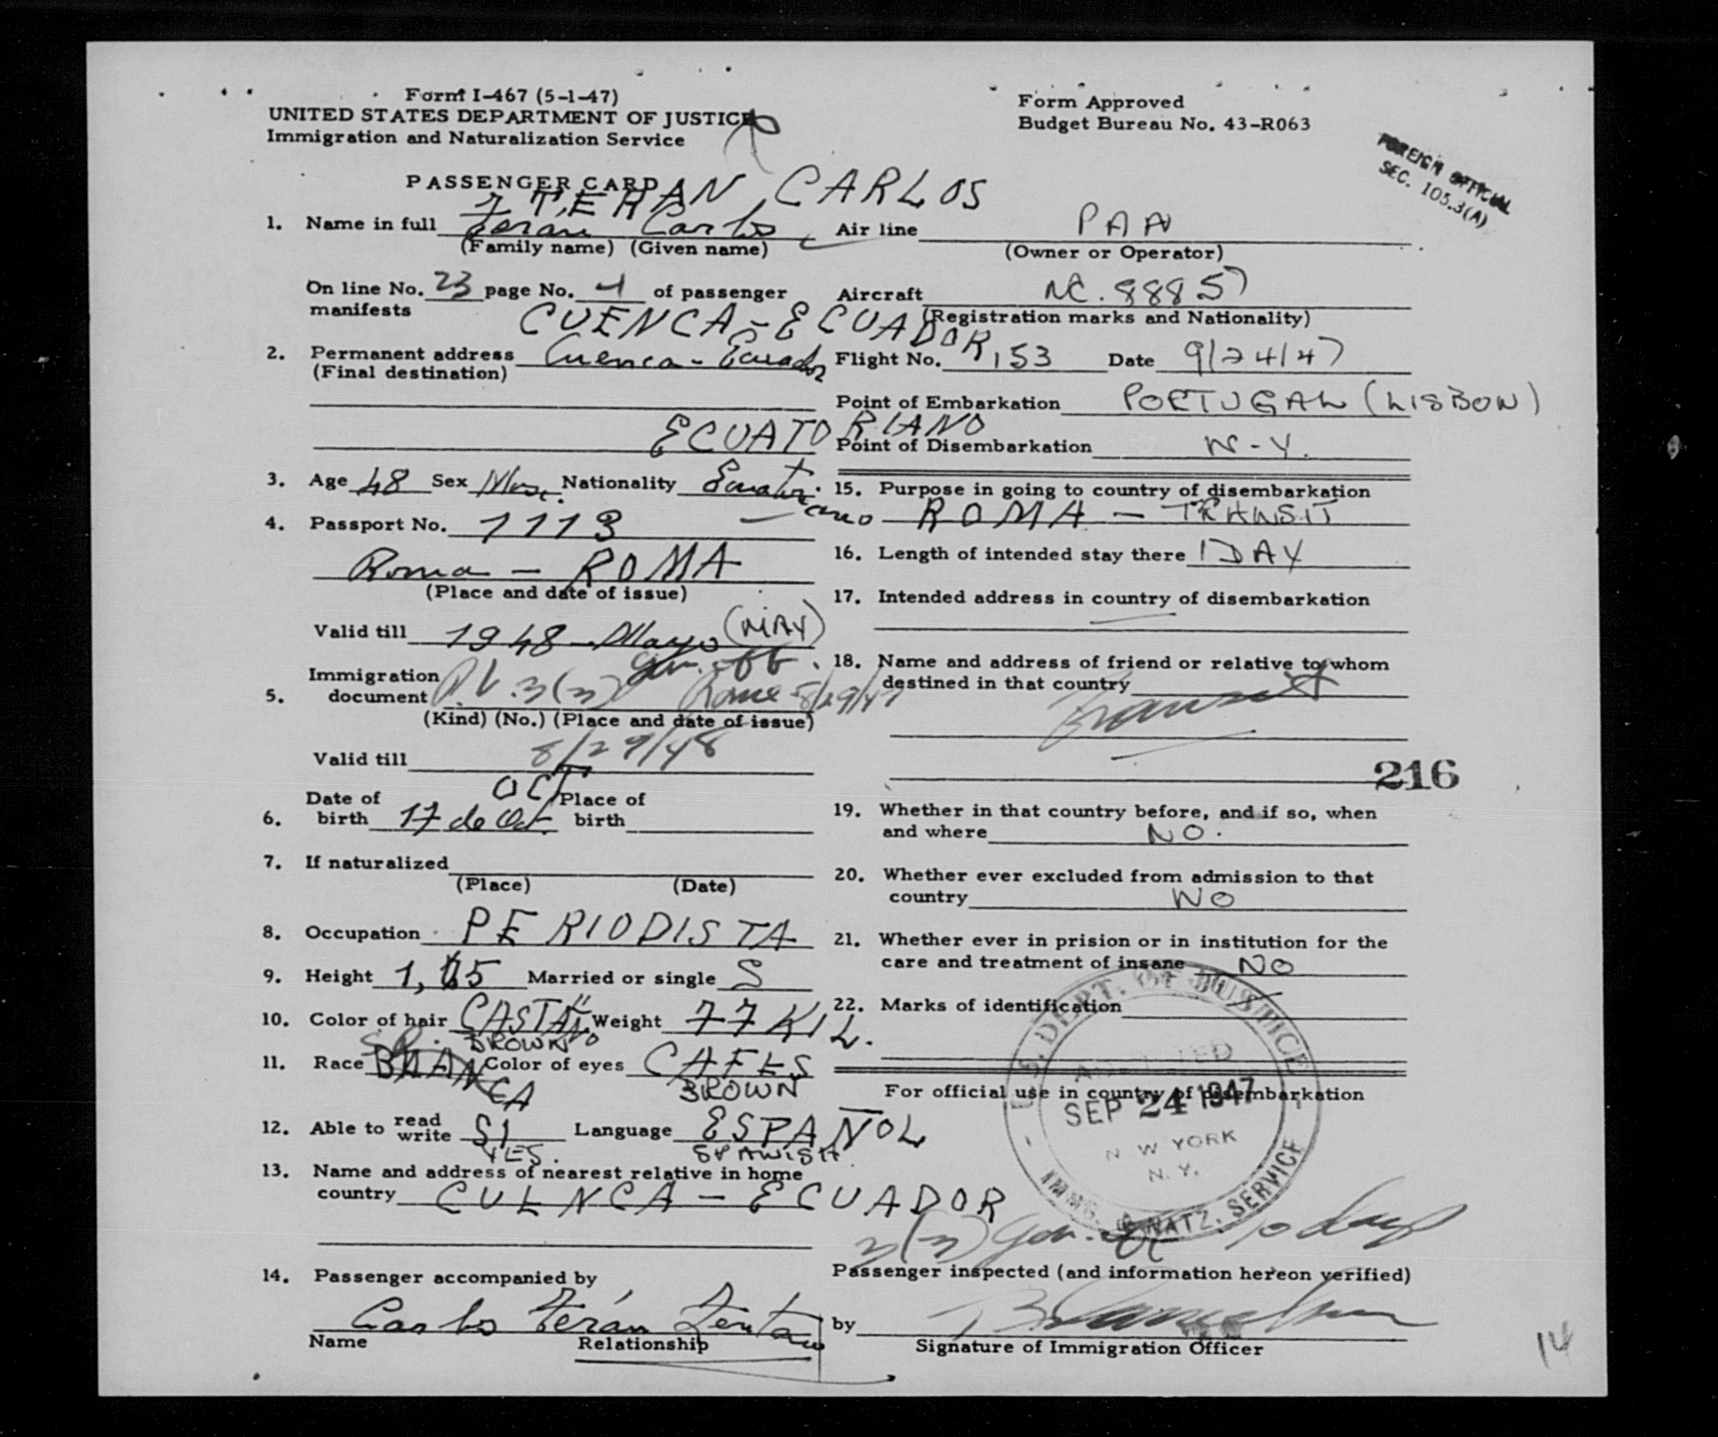 Form I-467 (5-1-47)
UNITED STATES DEPARTMENT OF JUSTICE
Immigration and Naturalization Service
Form Approved
Budget Bureau No. 43-R063
FOREIGN OFFICIAL
SEC. 103.3(A)
PASSENGER CARD
TERAN, CARLOS
1. Name in full Teran Carlos
(Family name) (Given name)
Air line PAA
(Owner or Operator)
On line No. 23 page No. 1 of passenger
manifests
Aircraft NC. 88857
(Registration marks and Nationality)
CUENCA - ECUADOR
2. Permanent address Cuenca - Ecuador
(Final destination)
Flight No. 153 Date 9/24/47
Point of Embarkation PORTUGAL (LISBON)
ECUATORIANO
Point of Disembarkation N-Y.
3. Age 48 Sex Masc. Nationality Ecuatoriano
4. Passport No. 1113
Roma - ROMA
(Place and date of issue)
Valid till 1948 - Mayo (MAY)
5. Immigration
document 3(3) Gov. off. Rome 8/29/47
(Kind) (No.) (Place and date of issue)
Valid till 8/29/48
OCT
6. Date of
birth 17 de Oct. Place of
birth
7. If naturalized
(Place) (Date)
8. Occupation PERIODISTA
9. Height 1,65 Married or single S
10. Color of hair CASTAÑO Weight 77 KIL.
BROWN
11. Race BLANCA Color of eyes CAFES
BROWN
12. Able to read
write SI Language ESPAÑOL
YES. SPANISH
13. Name and address of nearest relative in home
country CUENCA - ECUADOR
14. Passenger accompanied by
Carlos Terán
Name Relationship
15. Purpose in going to country of disembarkation
ROMA - TRANSIT
16. Length of intended stay there 1 DAY
17. Intended address in country of disembarkation
18. Name and address of friend or relative to whom
destined in that country
Transit
216
19. Whether in that country before, and if so, when
and where NO.
20. Whether ever excluded from admission to that
country NO
21. Whether ever in prision or in institution for the
care and treatment of insane NO
22. Marks of identification
For official use in country of disembarkation
U.S. DEPT. OF JUSTICE
ADMITTED
SEP 24 1947
NEW YORK
N.Y.
IMMG. & NATZ. SERVICE
3(3) Gov. off
Passenger inspected (and information hereon verified)
by
Signature of Immigration Officer
14